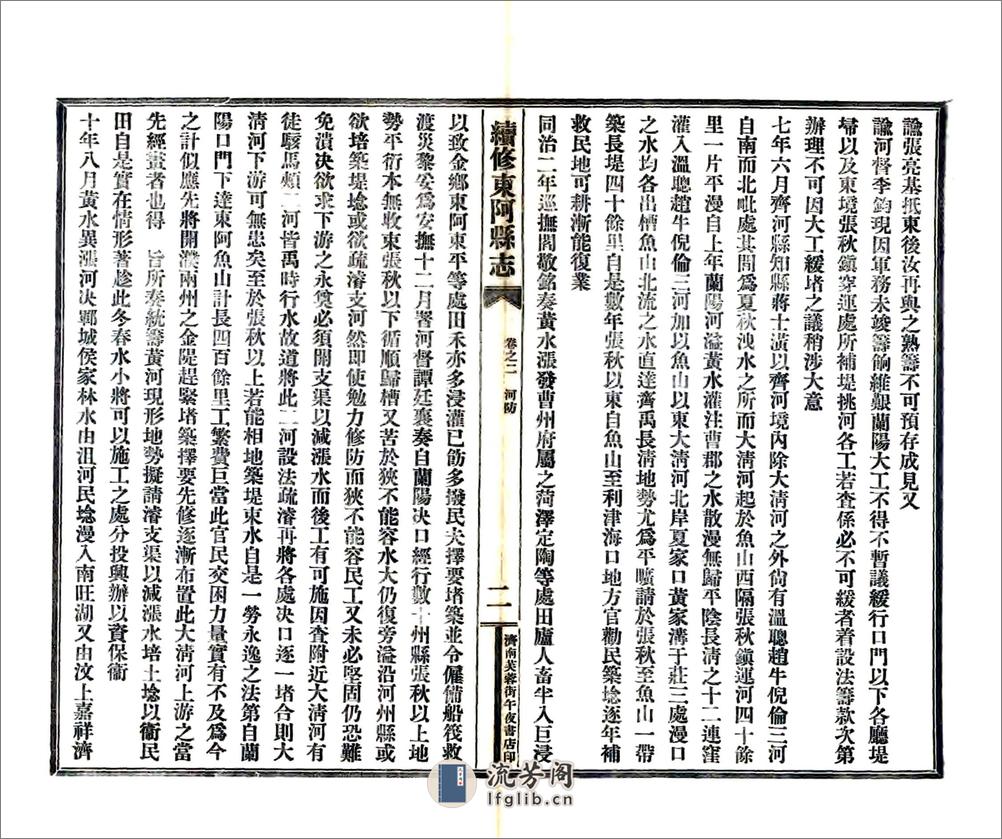 諭張亮基抵東後汝再與之熟籌不可預存成見又
諭河督李鈞現因軍務未竣籌餉維艱蘭陽大工不得不暫議緩行口門以下各廳堤
埽以及東境張秋鎭穿運處所補堤挑河各工若查係必不可緩者着設法籌款次第
辦理不可因大工緩堵之議稍涉大意
七年六月齊河縣知縣蔣士潢以齊河境內除大淸河之外尙有溫聰趙牛倪倫三河
自南而北毗處其間爲夏秋洩水之所而大淸河起於魚山西隔張秋鎭運河四十餘
里一片平漫自上年蘭陽河溢黃水灌注曹郡之水散漫無歸平陰長淸之十二連窪
灌入溫聰趙牛倪倫三河加以魚山以東大淸河北岸夏家口黃家溝于莊三處漫口
之水均各出槽魚山北流之水直達齊禹長淸地勢尤爲平曠請於張秋至魚山一帶
築長堤四十餘里自是數年張秋以東自魚山至利津海口地方官勸民築埝逐年補
救民地可耕漸能復業
同治二年巡撫閻敬銘奏黃水漲發曹州府屬之菏澤定陶等處田廬人畜半入巨浸
續修東阿縣志
卷之二 河防
二
濟南芙蓉街午夜書店印
以致金鄉東阿東平等處田禾亦多浸灌已飭多撥民夫擇要堵築並令僱備船筏救
渡災黎妥爲安撫十二月署河督譚廷襄奏自蘭陽决口經行數十州縣張秋以上地
勢平衍本無收束張秋以下循順歸槽又苦於狹不能容水大仍復旁溢沿河州縣或
欲培築堤埝或欲疏濬支河然即使勉力修防而狹不能容民工又未必堅固仍恐難
免潰决欲求下游之永奠必須開支渠以減漲水而後工有可施因查附近大淸河有
徒駭馬頰二河皆禹時行水故道將此二河設法疏濬再將各處决口逐一堵合則大
淸河下游可無患矣至於張秋以上若能相地築堤束水自是一勞永逸之法第自蘭
陽口門下達東阿魚山計長四百餘里工繁費巨當此官民交困力量實有不及爲今
之計似應先將開濮兩州之金隄趕緊堵築擇要先修逐漸布置此大淸河上游之當
先經畫者也得 旨所奏統籌黃河現形地勢擬請濬支渠以減漲水培土埝以衞民
田自是實在情形著趁此冬春水小將可以施工之處分投興辦以資保衞
十年八月黃水異漲河决鄆城侯家林水由沮河民埝漫入南旺湖又由汶上嘉祥濟
流芳阁
lfglib.cn